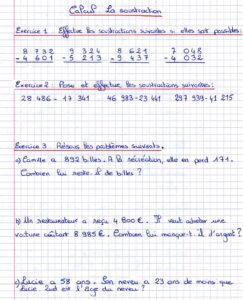 Calcul La soustraction
Exercice 1 Effectue les soustractions suivantes si elles sont possibles:
8 732   9 324   8 621   7 048
- 4 601   - 5 213   - 9 437   - 4 032
Exercice 2: Pose et effectue les soustractions suivantes:
28 486 - 17 341   46 983 - 23 441   297 939 - 41 215
Exercice 3 Résous les problèmes suivants.
a) Camille a 892 billes. A la récréation, elle en perd 171.
Combien lui reste-t-il de billes?
b) Un restaurateur a reçu 4 800 €. Il veut acheter une
voiture coûtant 8 985 €. Combien lui manque-t-il d'argent?
c) Lucie a 58 ans. Son neveu a 23 ans de moins que
Lucie. Quel est l'âge du neveu?